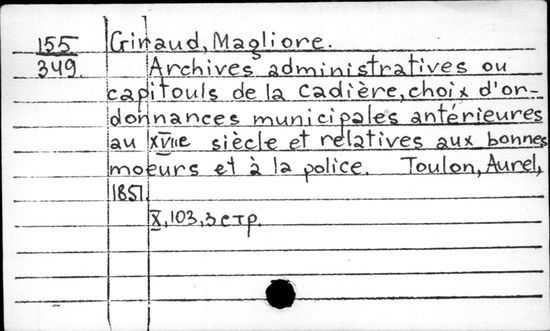 155 Giraud, Magliore.
349. Archives administratives ou
capitouls de la Cadière, choix d'or-
donnances municipales antérieures
au XVIIe siècle et relatives aux bonnes
moeurs et à la police. Toulon, Aurel,
1851.
X, 103, 3 стр.